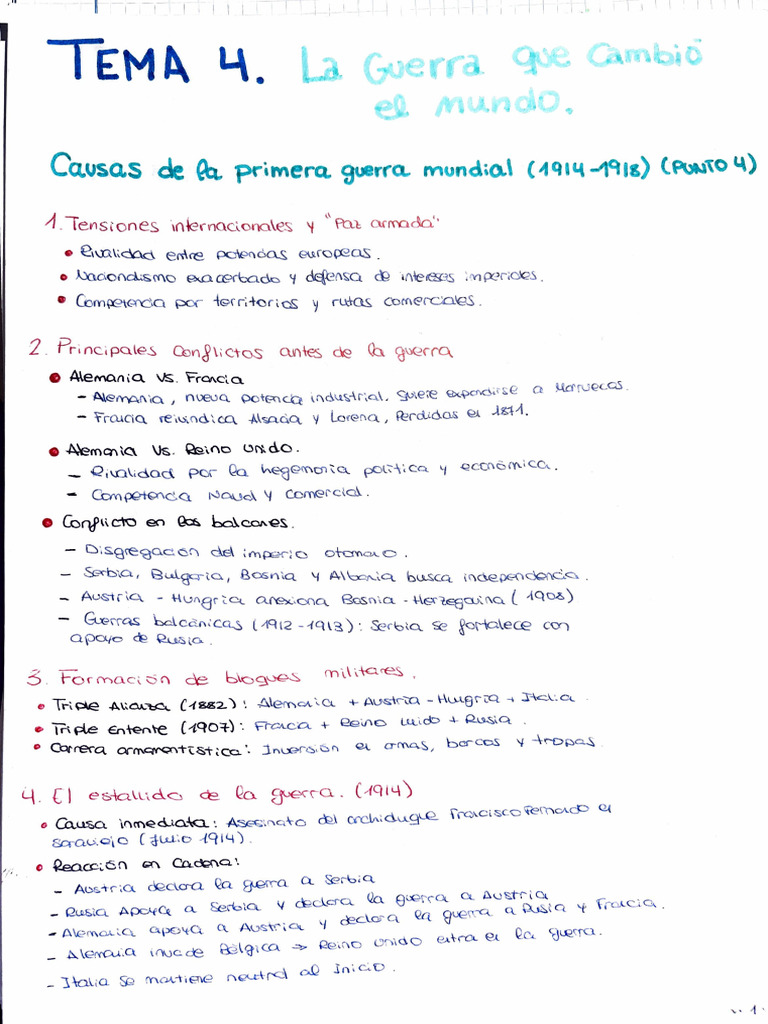 TEMA 4. La Guerra que cambió
el mundo.
Causas de la primera guerra mundial (1914-1918) (PUNTO 4)
1. Tensiones internacionales y "Paz armada"
• Rivalidad entre potencias europeas.
• Nacionalismo exacerbado y defensa de intereses imperiales.
• Competencia por territorios y rutas comerciales.
2. Principales conflictos antes de la guerra
• Alemania vs. Francia
- Alemania, nueva potencia industrial, quiere expandirse a Marruecos.
- Francia reivindica Alsacia y Lorena, Perdidas en 1871.
• Alemania Vs. Reino Unido.
- Rivalidad por la hegemonia política y económica.
- Competencia Naval y comercial.
• Conflicto en los balcanes.
- Disgregación del imperio otomano.
- Serbia, Bulgaria, Bosnia y Albania busca independencia.
- Austria - Hungria anexiona Bosnia - Herzegoina (1908)
- Guerras balcánicas (1912-1913): Serbia se fortalece con
apoyo de Rusia.
3. Formación de bloques militares.
• Triple Alianza (1882): Alemania + Austria - Hungria + Italia.
• Triple Entente (1907): Francia + Reino Unido + Rusia.
• Carrera armamentística: Inversión en armas, barcos y tropas.
4. El estallido de la guerra. (1914)
• Causa inmediata: Asesinato del archiduque Francisco Fernando en
saravejo (Julio 1914).
• Reacción en Cadena:
- Austria declara la guerra a Serbia
- Rusia Apoya a Serbia y declara la guerra a Austria
- Alemania apoya a Austria y declara la guerra a Rusia y Francia.
- Alemania invade Bélgica ⇒ Reino Unido entra en la guerra.
- Italia se mantiene neutral al Inicio.
1.